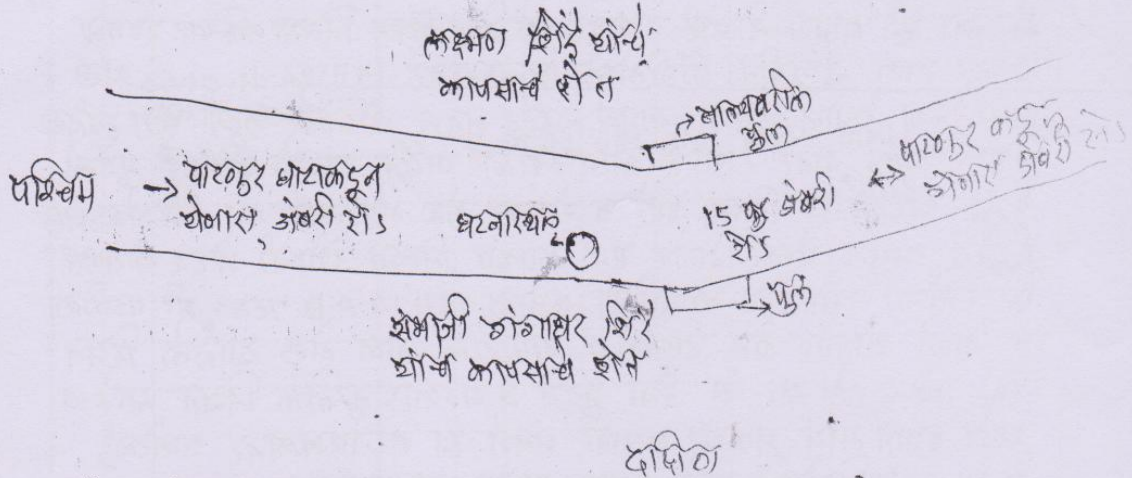 लक्ष्मण शिंदे यांचे
कापसाचे शेत
नाल्यावरील
पुल
पश्चिम
→ पाटनुर कडुन
डांबरी रोड
घटनास्थळ
15 फुट डांबरी
रोड
पाटनुर कडुन
डांबरी रोड
पुल
संभाजी गंगाधर शिंदे
यांचे कापसाचे शेत
दक्षिण